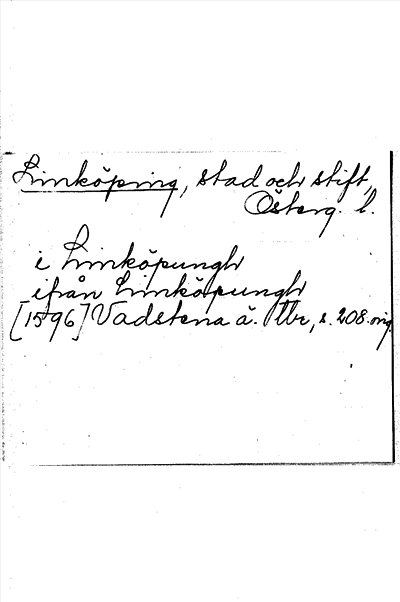 Linköping, stad och stift,
Österg. l.
i Linköpungh
ifrån Linköpungh
[1596] Vadstena ä. Tbr, s. 208. orig.